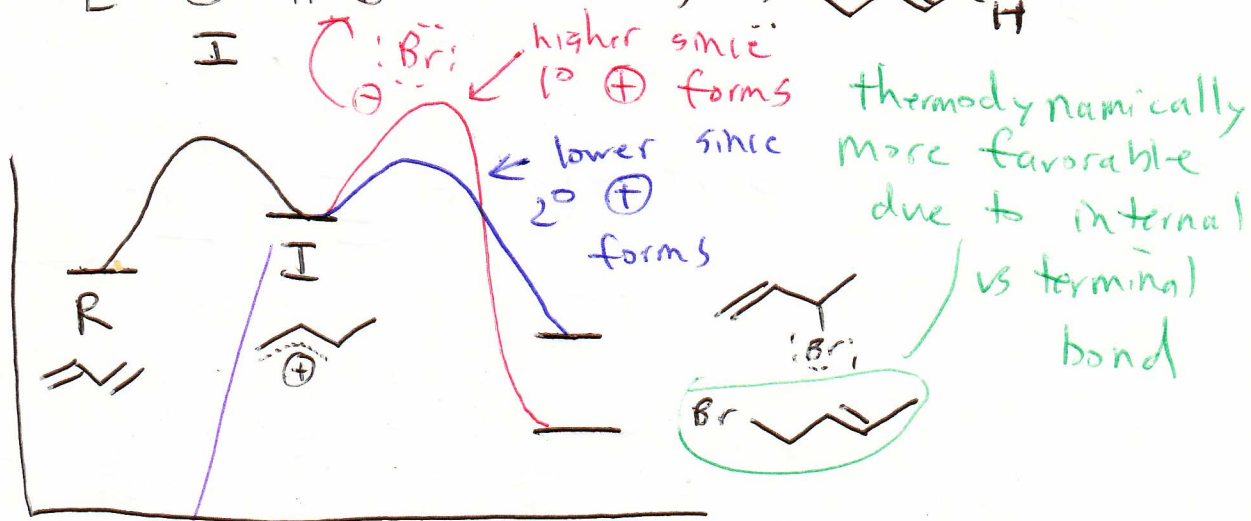 H
I
:Br:
⊖
higher since
1° ⊕ forms
lower since
2° ⊕
forms
thermodynamically
more favorable
due to internal
vs terminal
bond
R
I
⊕
:Br:
Br